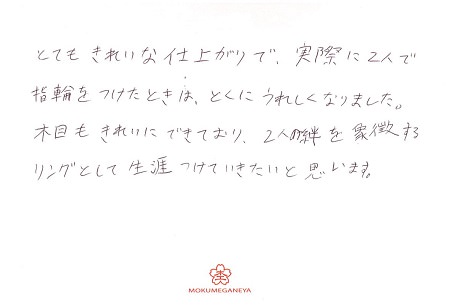 とてもきれいな仕上がりで、実際に2人で
指輪をつけたときは、とくにうれしくなりました。
木目もきれいにできており、2人の絆を象徴する
リングとして生涯つけていきたいと思います。
MOKUMEGANEYA